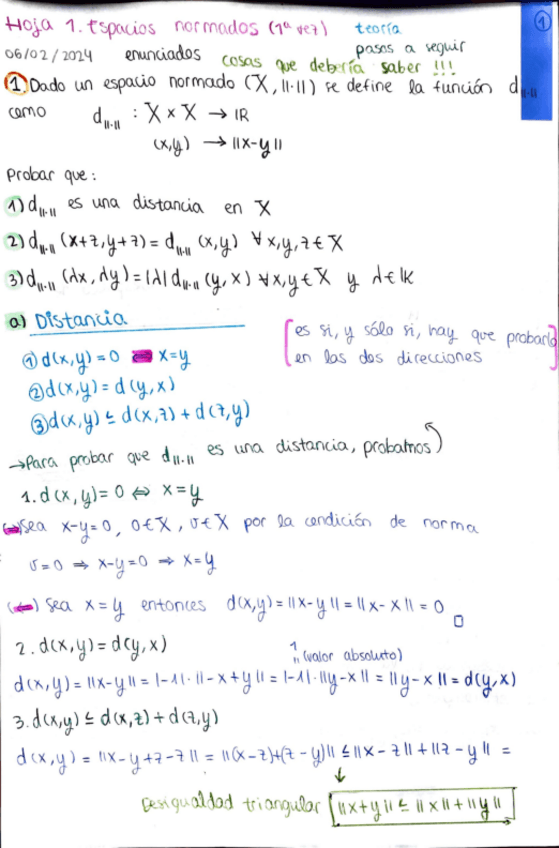 Hoja 1. Espacios normados (1ª vez) teoría
06/02/2024 enunciados pasos a seguir
cosas que debería saber !!!
1
① Dado un espacio normado (X, ||·||) se define la función d||·||
como d||·|| : X × X → IR
(x,y) → ||x-y||
Probar que:
1) d||·|| es una distancia en X
2) d||·|| (x+z, y+z) = d||·|| (x,y) ∀ x,y,z ∈ X
3) d||·|| (λx, λy) = |λ| d||·|| (y,x) ∀x,y ∈ X y λ ∈ IK
a) Distancia
[es si, y sólo si, hay que probarlo
en las dos direcciones]
① d(x,y) = 0 ⟺ x=y
② d(x,y) = d(y,x)
③ d(x,y) ≤ d(x,z) + d(z,y)
→Para probar que d||·|| es una distancia, probamos
1. d(x,y) = 0 ⇔ x=y
(⇒) Sea x-y=0, 0∈X, v∈X por la condición de norma
v=0 ⇒ x-y=0 ⇒ x=y
(⇐) Sea x=y entonces d(x,y) = ||x-y|| = ||x-x|| = 0 □
2. d(x,y) = d(y,x)
1
" (valor absoluto)
d(x,y) = ||x-y|| = |-1|·||-x+y|| = |-1|·||y-x|| = ||y-x|| = d(y,x)
3. d(x,y) ≤ d(x,z) + d(z,y)
d(x,y) = ||x-y+z-z|| = ||(x-z)+(z-y)|| ≤ ||x-z|| + ||z-y|| =
↓
Desigualdad triangular ||x+y|| ≤ ||x|| + ||y||